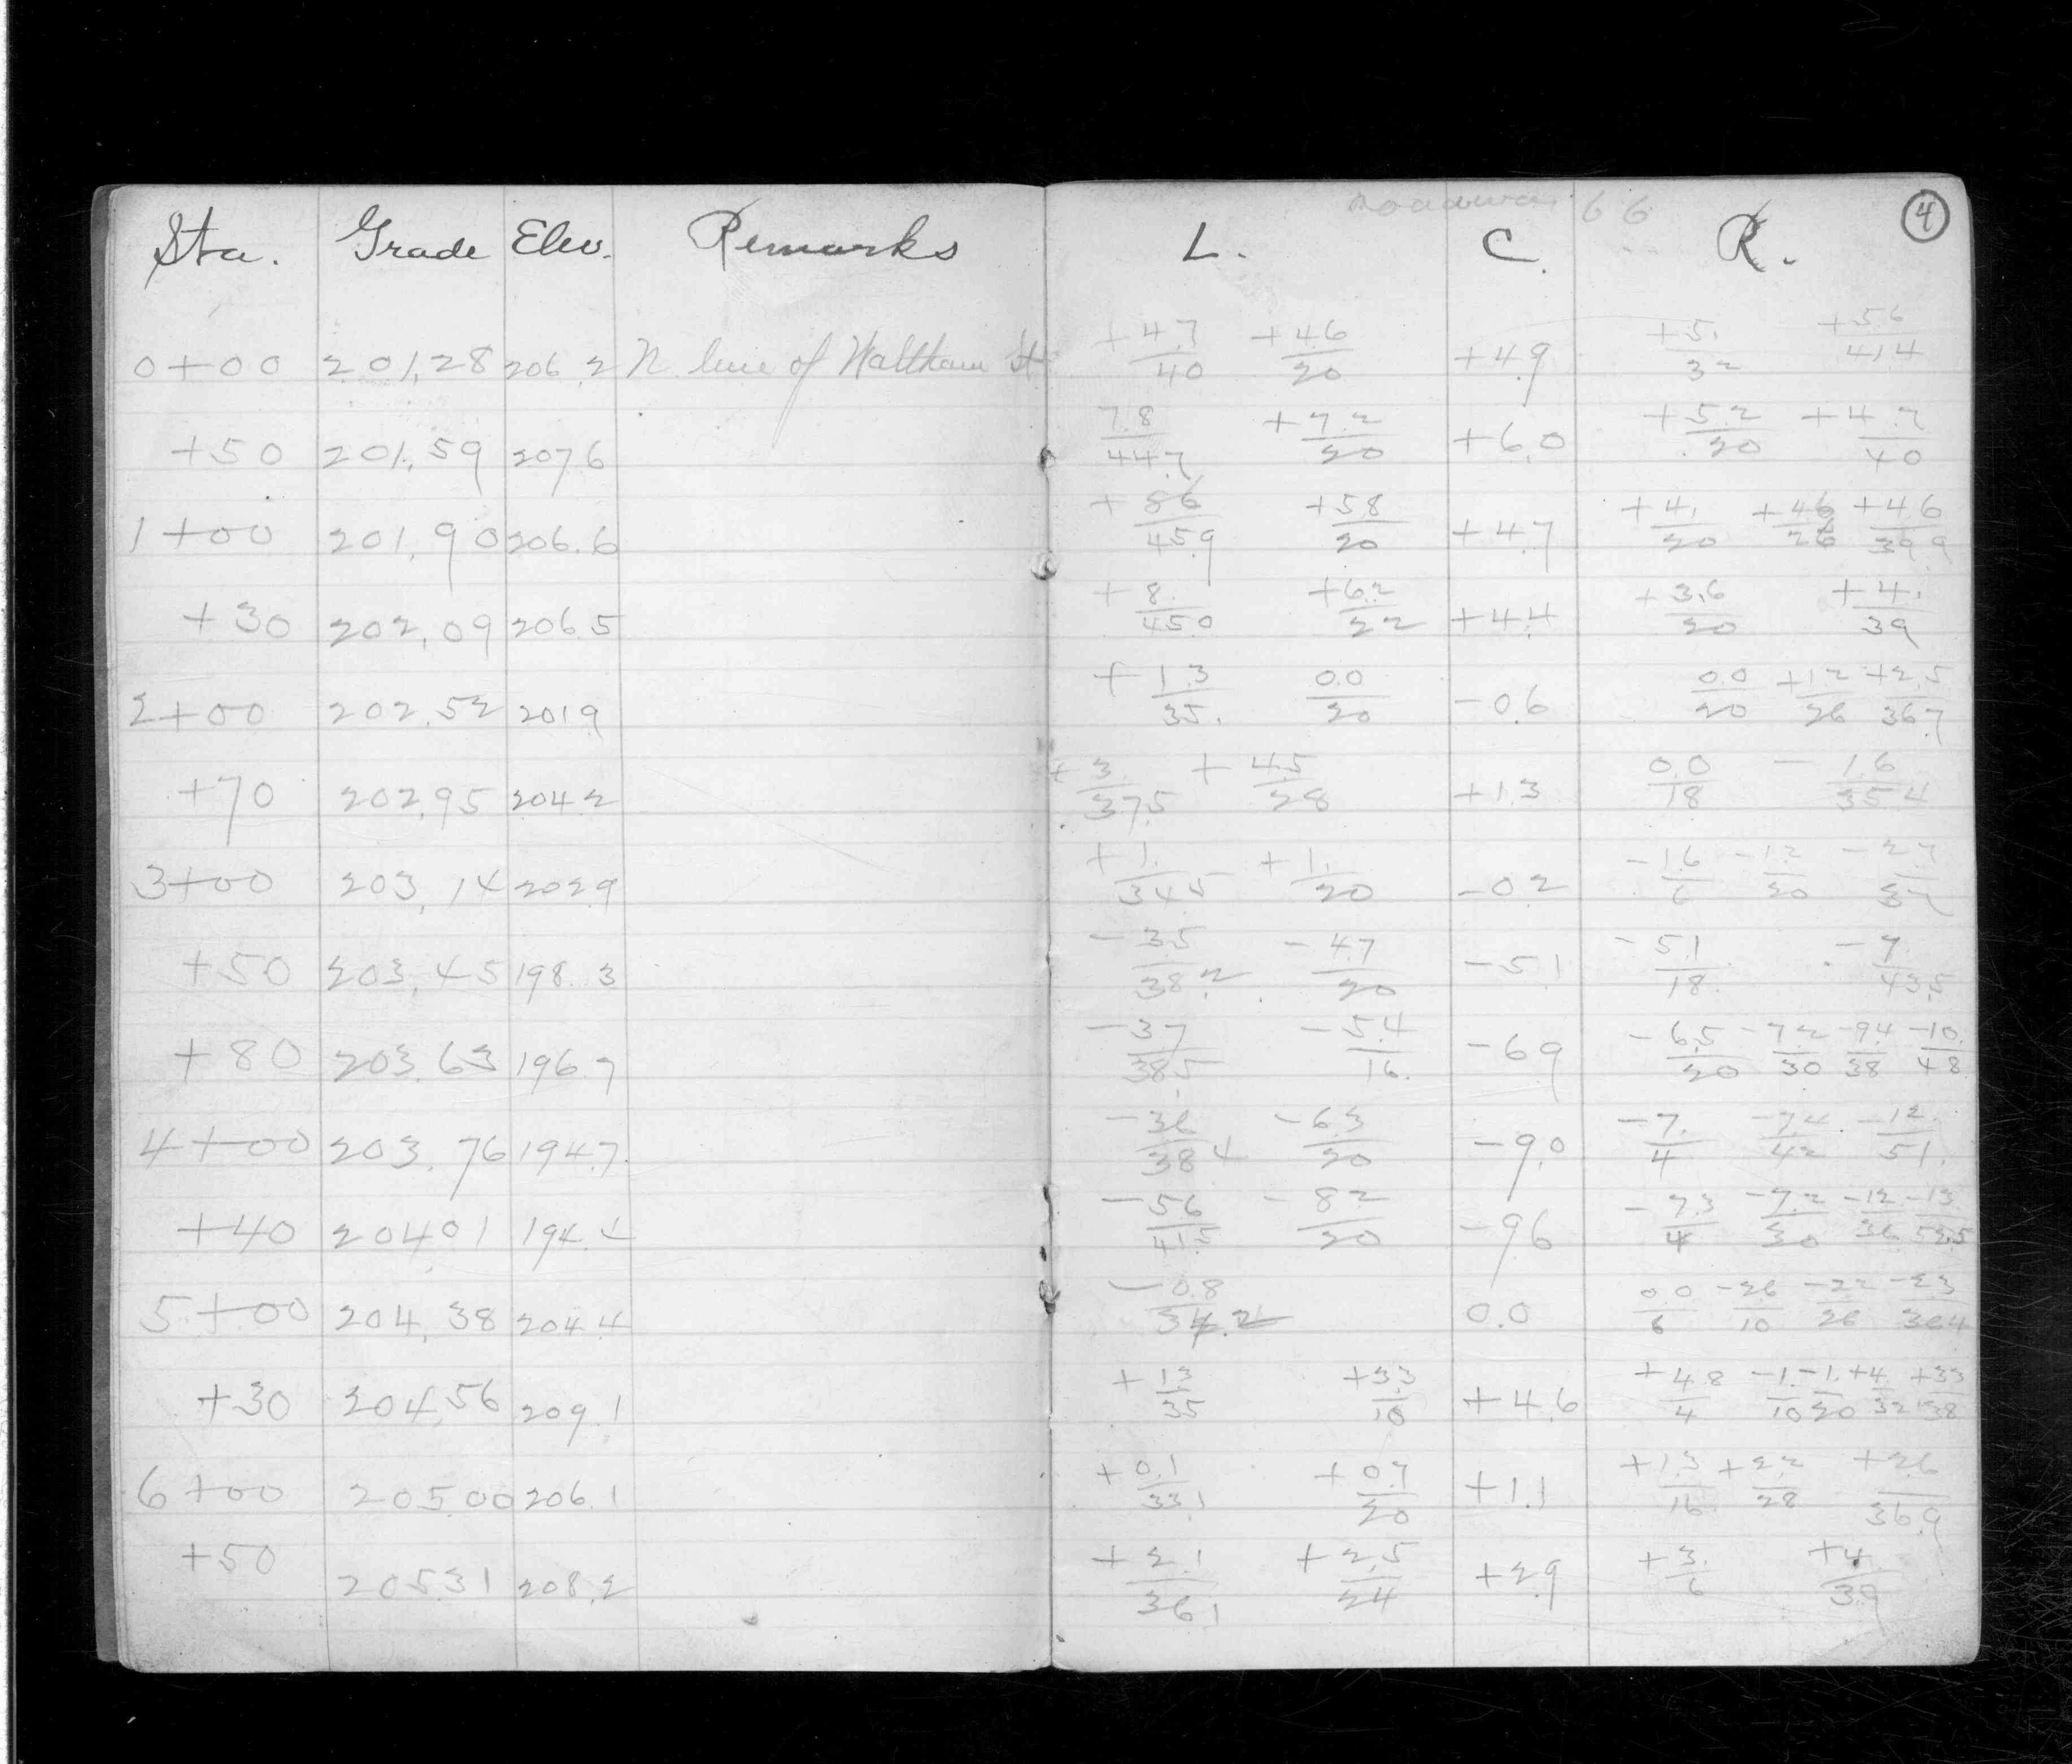 Roadway 66
4
Sta. Grade Elev. Remarks L. C. R.
0+00 201.28 206.2 N. line of Waltham St +4.7/40 +4.6/20 +4.9 +5./32 +5.6/41.4
+50 201.59 207.6 7.8/44.7 +7.2/20 +6.0 +5.2/20 +4.7/40
1+00 201.90 206.6 +8.6/45.9 +5.8/20 +4.7 +4./20 +4.6/26 +4.6/39.9
+30 202.09 206.5 +8./45.0 +6.2/22 +4.4 +3.6/20 +4./39
2+00 202.52 201.9 +1.3/35. 0.0/20 -0.6 0.0/20 +1.2/26 +2.5/36.7
+70 202.95 204.2 +3./37.5 +4.5/28 +1.3 0.0/18 -1.6/35.4
3+00 203.14 202.9 +1./34.5 +1./20 -0.2 -1.6/6 -1.2/20 -2.7/37
+50 203.45 198.3 -3.5/38.2 -4.7/20 -5.1 -5.1/18. -7/43.5
+80 203.63 196.7 -3.7/38.5 -5.4/16. -6.9 -6.5/20 -7.2/30 -9.4/38 -10./48
4+00 203.76 194.7 -3.6/38.4 -6.3/20 -9.0 -7./4 -7.4/42 -12./51.
+40 204.01 194.4 -5.6/41.5 -8.2/20 -9.6 -7.3/4 -7.2/30 -12/36 -13./52.5
5+00 204.38 204.4 -0.8/34.2 0.0 0.0/6 -2.6/10 -2.2/26 -2.3/36.4
+30 204.56 209.1 +1.3/35 +3.3/10 +4.6 +4.8/4 -1./10 -1./20 +4./32 +3.3/38
6+00 205.00 206.1 +0.1/33.1 +0.7/20 +1.1 +1.3/16. +2.2/28 +2.6/36.9
+50 205.31 208.2 +2.1/36.1 +2.5/24 +2.9 +3./6 +4./39